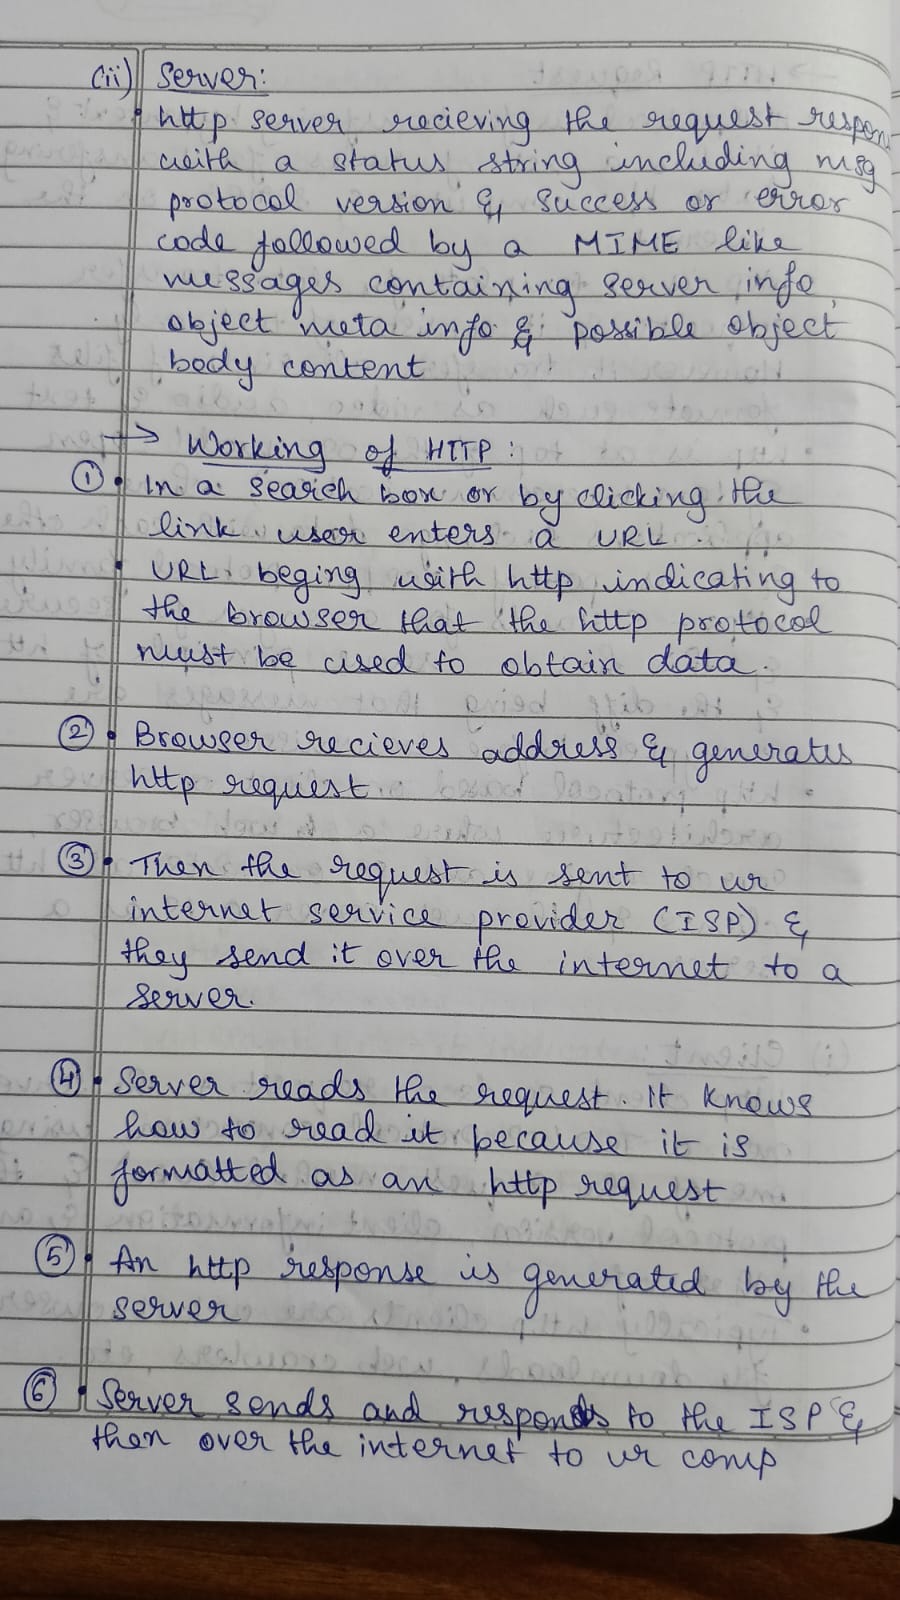 (ii) Server:
• http server recieving the request respon
with a status string including msg
protocol version & success or error
code followed by a MIME like
messages containing server info
object meta info & possible object
body content
→ Working of HTTP:
① • In a search box or by clicking the
link user enters a URL.
• URL beging with http indicating to
the browser that the http protocol
must be used to obtain data.
② • Browser recieves address & generates
http request.
③ • Then the request is sent to ur
internet service provider (ISP) &
they send it over the internet to a
server.
④ • Server reads the request. It knows
how to read it because it is
formatted as an http request
⑤ • An http response is generated by the
server
⑥ • Server sends and responds to the ISP &
then over the internet to ur comp